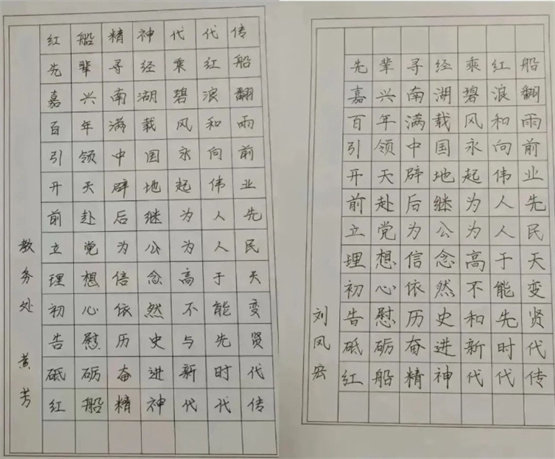 红船精神代代传
先辈寻经乘红船
嘉兴南湖碧浪翻
百年满载风和雨
引领中国永向前
开天辟地起伟业
前赴后继为人先
立党为公为人民
理想信念高于天
初心依然不能变
告慰历史与先贤
砥砺奋进新时代
红船精神代代传
教务处 黄芳
先辈寻经乘红船
嘉兴南湖碧浪翻
百年满载风和雨
引领中国永向前
开天辟地起伟业
前赴后继为人先
立党为公为人民
理想信念高于天
初心依然不能变
告慰历史和先贤
砥砺奋进新时代
红船精神代代传
刘凤宏